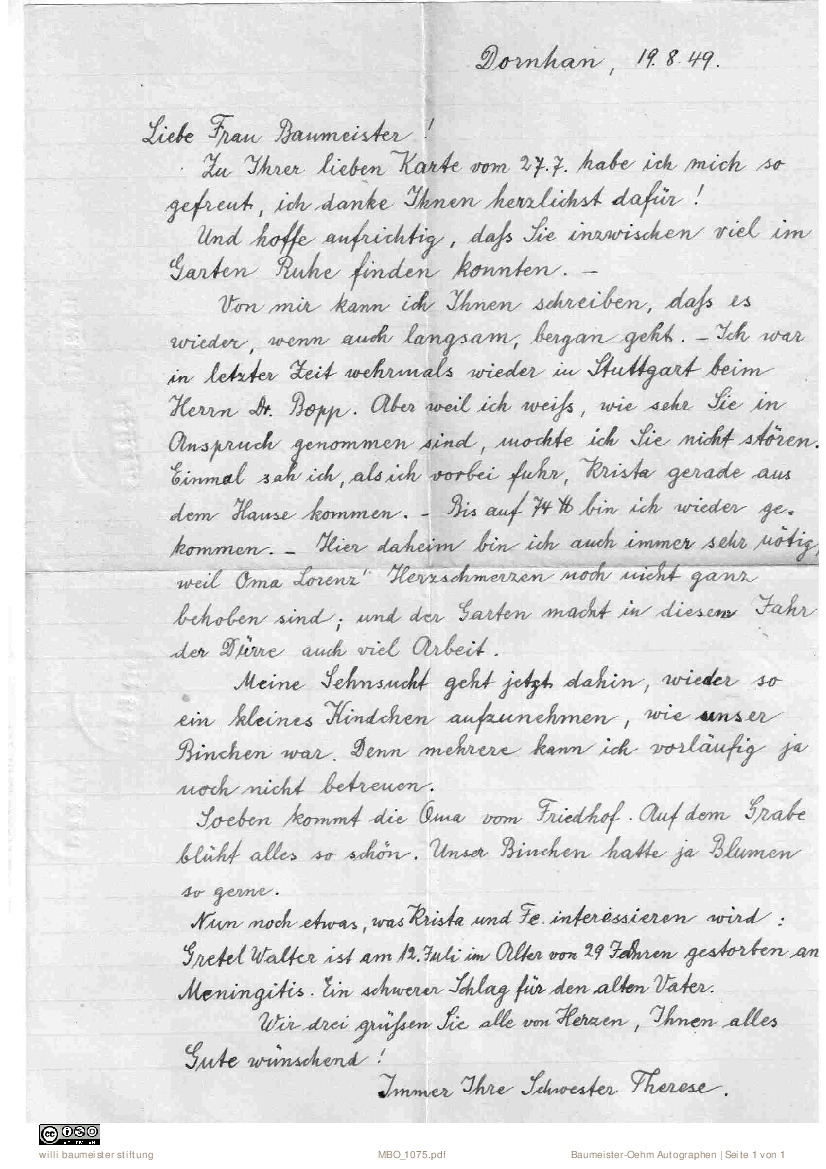 Dornhan, 19.8.49.
Liebe Frau Baumeister!
Zu Ihrer lieben Karte vom 27.7. habe ich mich so
gefreut, ich danke Ihnen herzlichst dafür!
Und hoffe aufrichtig, daß Sie inzwischen viel im
Garten Ruhe finden konnten. –
Von mir kann ich Ihnen schreiben, daß es
wieder, wenn auch langsam, bergan geht. – Ich war
in letzter Zeit mehrmals wieder in Stuttgart beim
Herrn Dr. Bopp. Aber weil ich weiß, wie sehr Sie in
Anspruch genommen sind, mochte ich Sie nicht stören.
Einmal sah ich, als ich vorbei fuhr, Krista gerade aus
dem Hause kommen. – Bis auf 74 ℔ bin ich wieder ge-
kommen. – Hier daheim bin ich auch immer sehr nötig,
weil Oma Lorenz' Herzschmerzen noch nicht ganz
behoben sind; und der Garten macht in diesem Jahr
der Dürre auch viel Arbeit.
Meine Sehnsucht geht jetzt dahin, wieder so
ein kleines Kindchen aufzunehmen, wie unser
Binchen war. Denn mehrere kann ich vorläufig ja
noch nicht betreuen.
Soeben kommt die Oma vom Friedhof. Auf dem Grabe
blüht alles so schön. Unser Binchen hatte ja Blumen
so gerne.
Nun noch etwas, was Krista und Fe. interessieren wird:
Gretel Walter ist am 12. Juli im Alter von 29 Jahren gestorben an
Meningitis. Ein schwerer Schlag für den alten Vater.
Wir drei grüßen Sie alle von Herzen, Ihnen alles
Gute wünschend!
Immer Ihre Schwester Therese.
willi baumeister stiftung MBO_1075.pdf Baumeister-Oehm Autographen | Seite 1 von 1